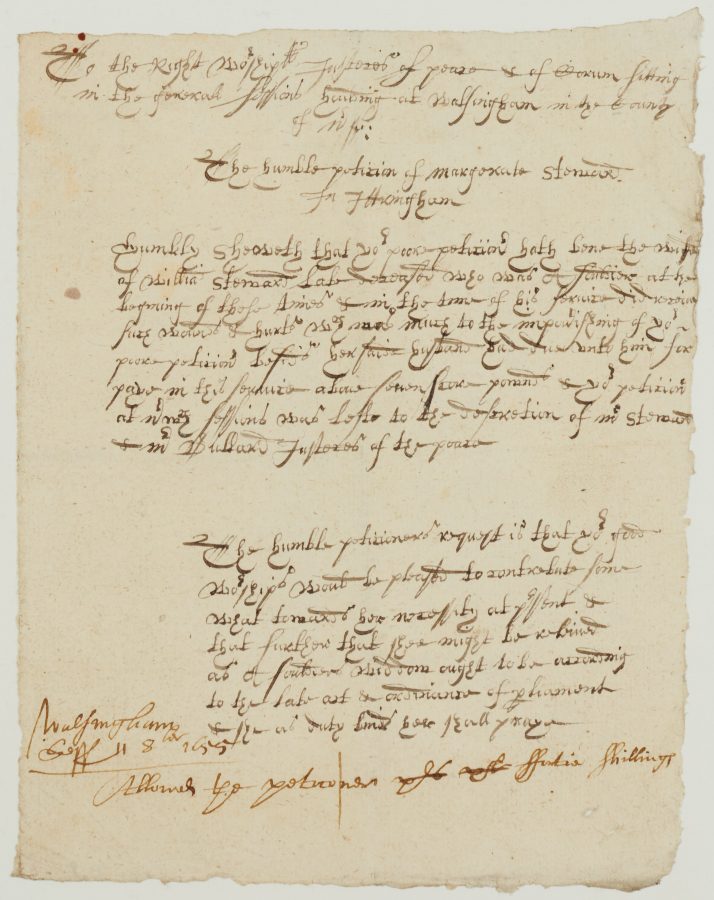 To the Right Worshipll Justeces of peace & of Corum sitting
in the generall sessions houlding at Walsingham in the County
of
The humble peticion of margerate Steward
In Ittringham
Humbly Sheweth that yor poore peticionr hath bene the wife
of Willia Steward late deceased who was A souldier at the
begining of these times & in the time of his service did receive
such wounds & hurts wch was much to the impovrishing of yor
poore peticionr besids her saide husband had due unto him for
paye in this service above seven score pounds & yor peticionr
at sessions was lefte to the descretion of mr Steward
& mr Bullard Justeces of the peace
The humble peticioners request is that yor good
Worships would be pleased to contrebute some
what towards her necessity at pesent &
that further that shee might be releived
as A souldiers widdow ought to be according
to the late act & ordinance of parliament
& she as duty binds her shall praye
Walsingham
Sess 8ber 1655
Allowed the peticoner fortie shillings